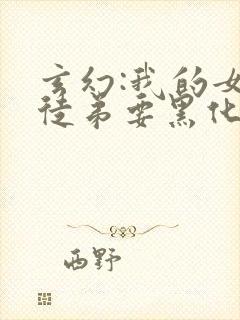 玄幻:我的女
徒弟要黑化
西野